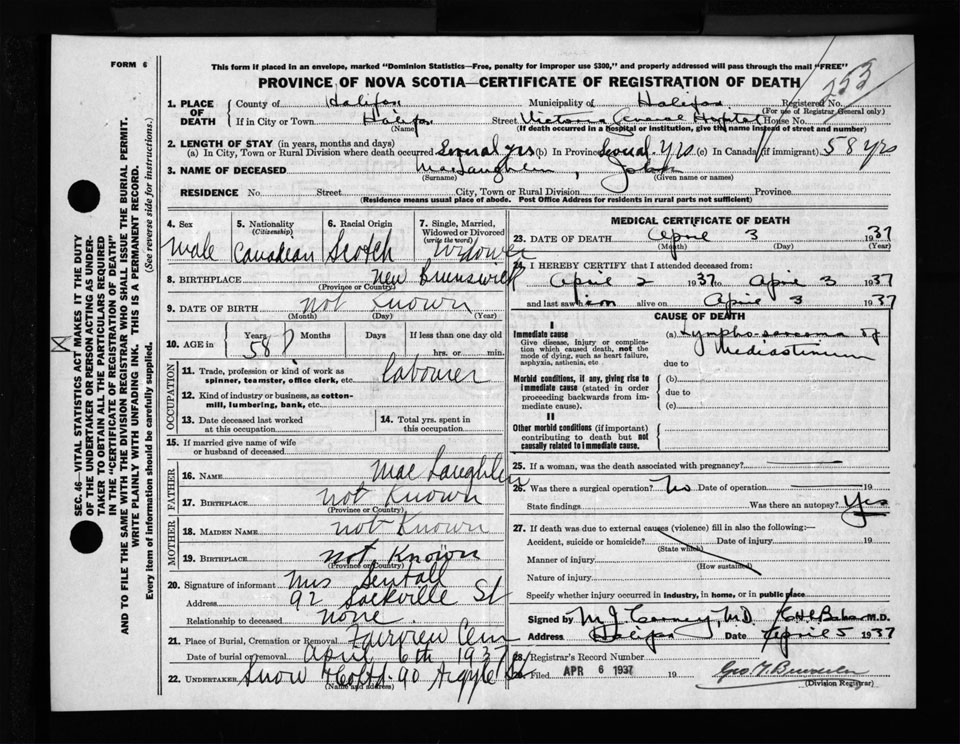 FORM 6
This form if placed in an envelope, marked "Dominion Statistics—Free, penalty for improper use $300," and properly addressed will pass through the mail "FREE"
PROVINCE OF NOVA SCOTIA—CERTIFICATE OF REGISTRATION OF DEATH
253
1. PLACE OF DEATH
County of Halifax Municipality of Halifax Registered No.
(For use of Registrar General only)
If in City or Town Halifax Street Victoria General Hospital House No.
(Name) (If death occurred in a hospital or institution, give the name instead of street and number)
2. LENGTH OF STAY (in years, months and days)
(a) In City, Town or Rural Division where death occurred Several yrs (b) In Province Several Yrs (c) In Canada (if immigrant) 58 yrs
3. NAME OF DECEASED MacLaughlin, John
(Surname) (Given name or names)
RESIDENCE No. Street City, Town or Rural Division Province
(Residence means usual place of abode. Post Office Address for residents in rural parts not sufficient)
4. Sex Male
5. Nationality (Citizenship) Canadian
6. Racial Origin Scotch
7. Single, Married, Widowed or Divorced (write the word) Widower
8. BIRTHPLACE New Brunswick
(Province or Country)
9. DATE OF BIRTH not Known
(Month) (Day) (Year)
10. AGE in Years 58 Months Days If less than one day old
hrs. or min.
OCCUPATION
11. Trade, profession or kind of work as spinner, teamster, office clerk, etc. labourer
12. Kind of industry or business, as cotton-mill, lumbering, bank, etc.
13. Date deceased last worked at this occupation
14. Total yrs. spent in this occupation
15. If married give name of wife or husband of deceased
FATHER
16. NAME Mac Laughlin
17. BIRTHPLACE not Known
(Province or Country)
MOTHER
18. MAIDEN NAME not Known
19. BIRTHPLACE not Known
(Province or Country)
20. Signature of informant Mrs
Address 92 Sackville St
Relationship to deceased none
21. Place of Burial, Cremation or Removal Fairview Cem
Date of burial or removal April 6th 1937
22. UNDERTAKER Snow 90 Argyle St
(Name and address)
MEDICAL CERTIFICATE OF DEATH
23. DATE OF DEATH April 3 1937
(Month) (Day) (Year)
24. I HEREBY CERTIFY that I attended deceased from:
April 2 1937 to April 3 1937
and last saw him alive on April 3 1937
CAUSE OF DEATH
I
Immediate cause
Give disease, injury or complication which caused death, not the mode of dying, such as heart failure, asphyxia, asthenia, etc
(a) Lympho-sarcoma of Mediastinum
due to
Morbid conditions, if any, giving rise to immediate cause (stated in order proceeding backwards from immediate cause).
(b)
due to
(c)
II
Other morbid conditions (if important) contributing to death but not causally related to immediate cause.
25. If a woman, was the death associated with pregnancy?
26. Was there a surgical operation? No Date of operation 19
State findings Was there an autopsy? Yes
27. If death was due to external causes (violence) fill in also the following:—
Accident, suicide or homicide? Date of injury 19
(State which)
Manner of injury
(How sustained)
Nature of injury
Specify whether injury occurred in industry, in home, or in public place
Signed by M.J. Carney, M.D. M.D.
Address Halifax Date April 5 1937
28. Registrar's Record Number
29. Filed APR 6 1937 19
(Division Registrar)
SEC. 46—VITAL STATISTICS ACT MAKES IT THE DUTY
OF THE UNDERTAKER OR PERSON ACTING AS UNDER-
TAKER TO OBTAIN ALL THE PARTICULARS REQUIRED
IN THE "CERTIFICATE OF REGISTRATION OF DEATH"
AND TO FILE THE SAME WITH THE DIVISION REGISTRAR WHO SHALL ISSUE THE BURIAL PERMIT.
WRITE PLAINLY WITH UNFADING INK. THIS IS A PERMANENT RECORD.
Every item of information should be carefully supplied. (See reverse side for instructions.)